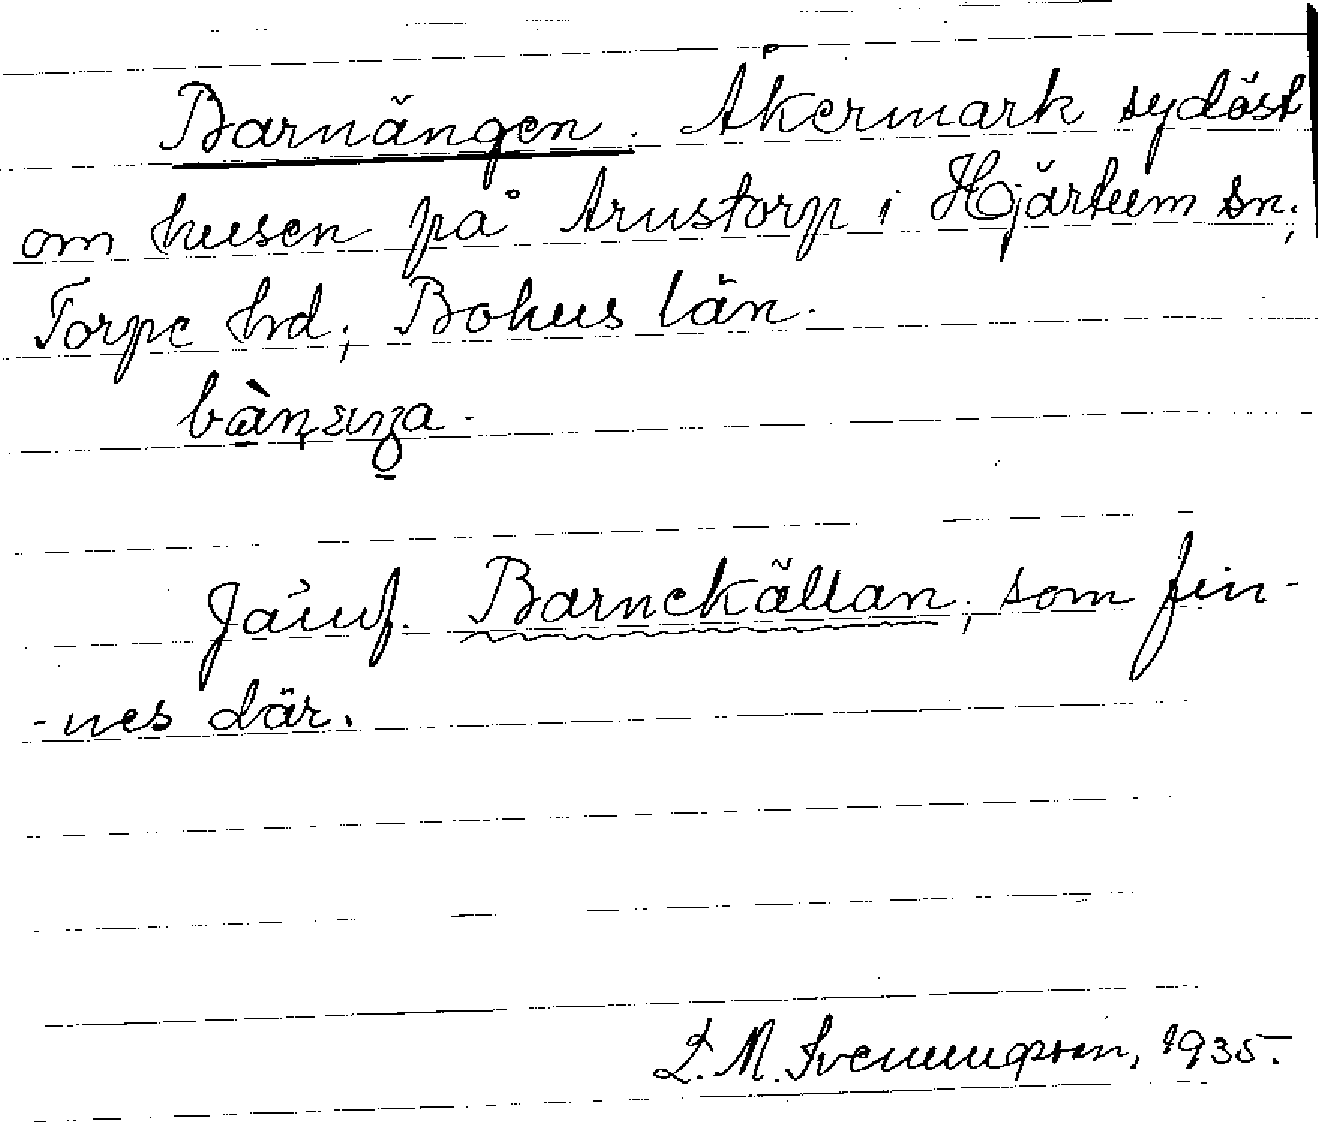 Barnängen. Åkermark sydöst
om husen på Arustorp i Hjärtum sn;
Torpe hd; Bohus län.
Jämf. Barnekällan, som fin-
-nes där.
L. M. Svenungsson, 1935.